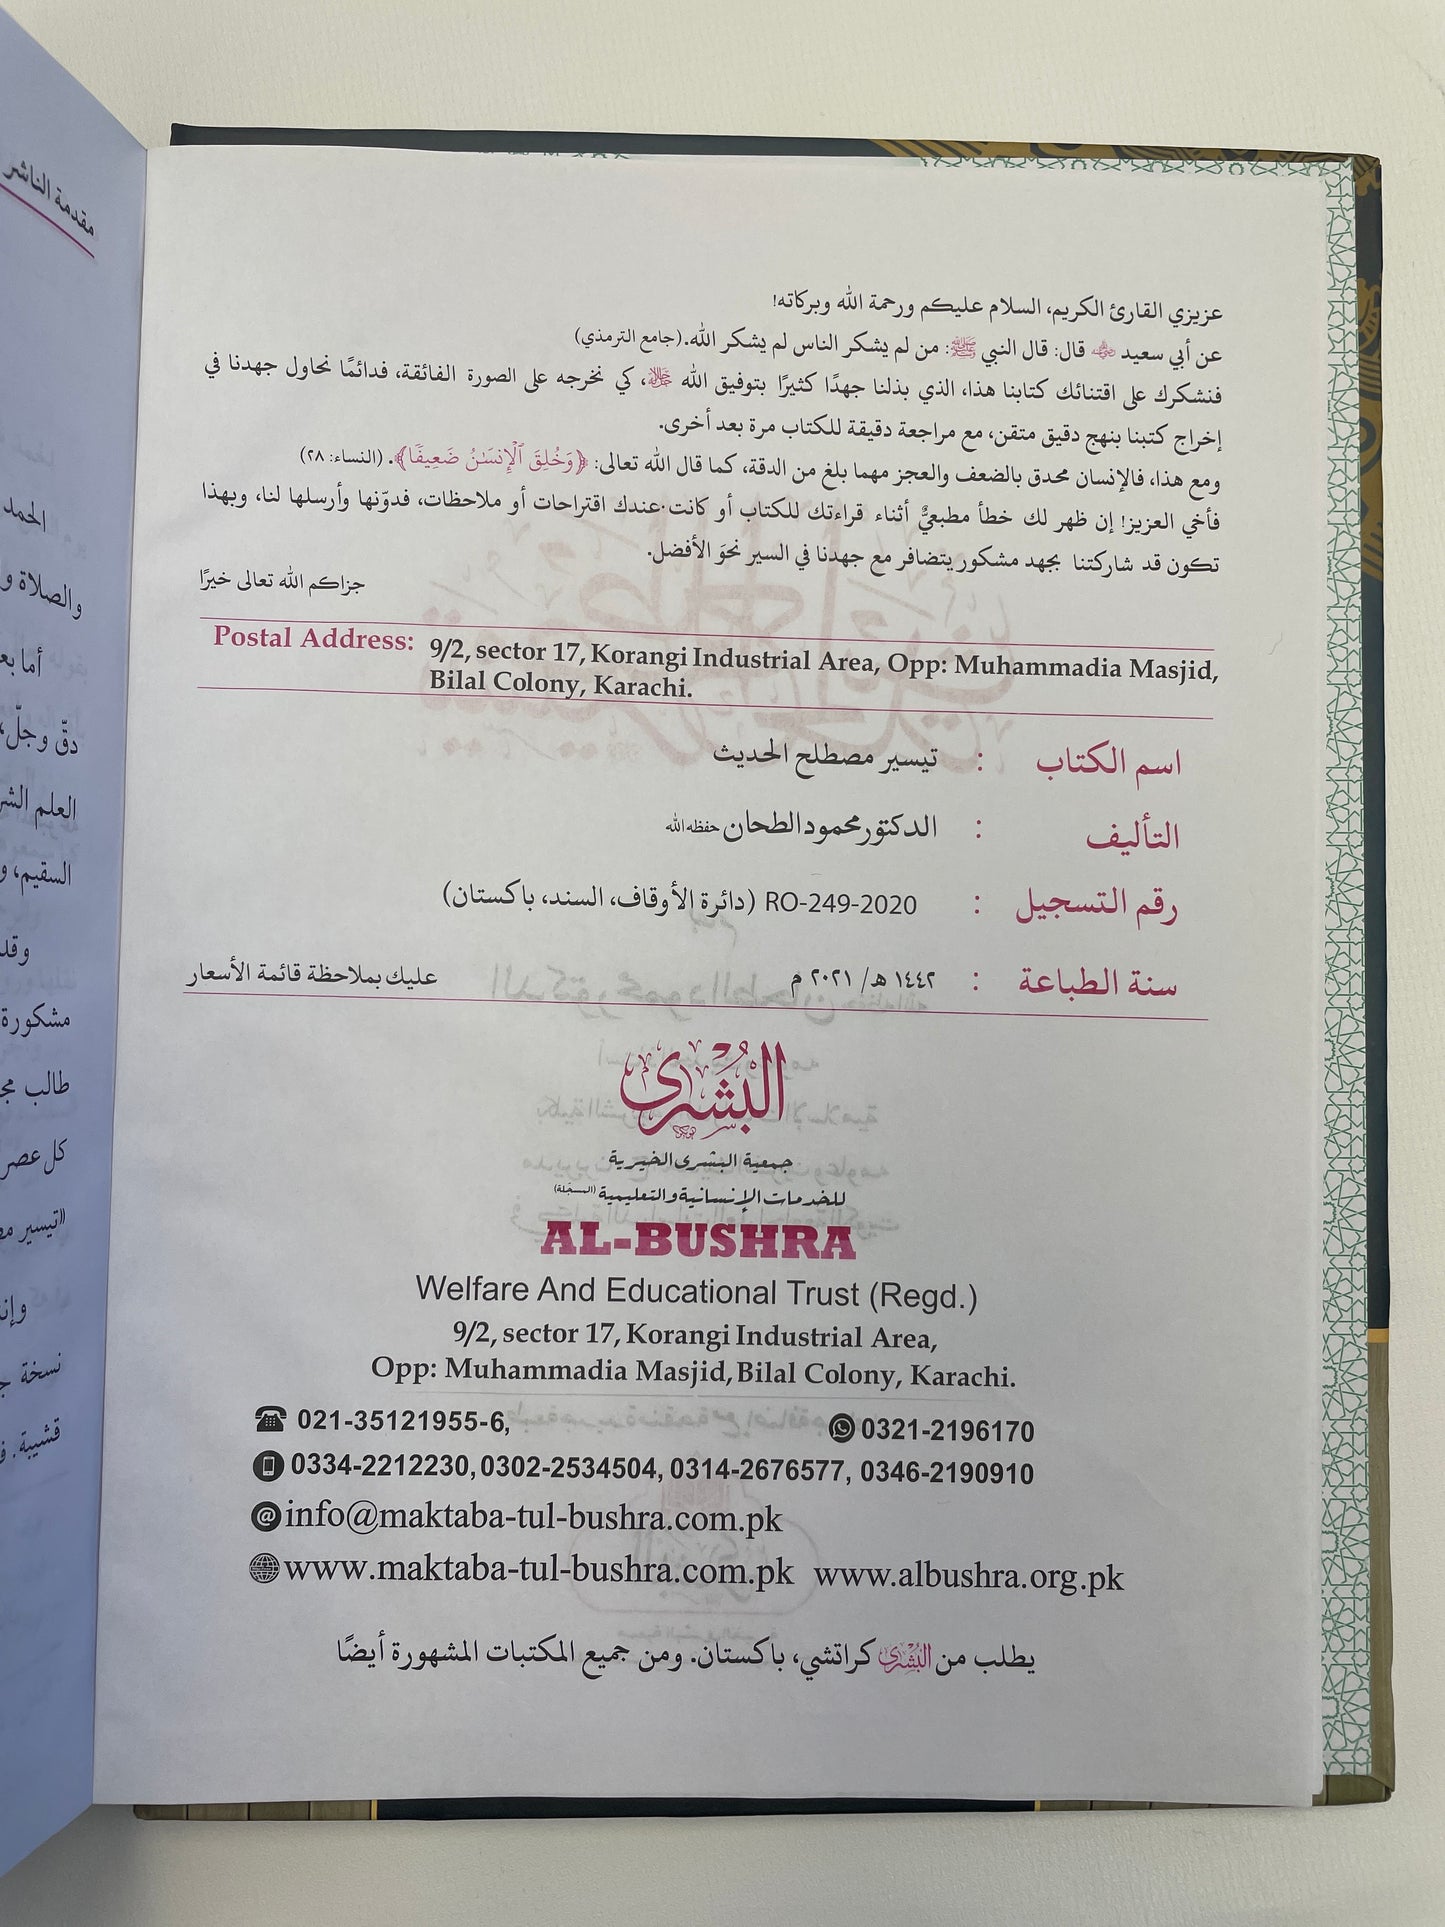 مقدمة الناشر
عزيزي القارئ الكريم، السلام عليكم ورحمة الله وبركاته!
عن أبي سعيد ؓ قال: قال النبي ﷺ: من لم يشكر الناس لم يشكر الله. (جامع الترمذي)
فنشكرك على اقتنائك كتابنا هذا، الذي بذلنا جهدًا كثيرًا بتوفيق الله ﷻ، كي نخرجه على الصورة الفائقة، فدائمًا نحاول جهدنا في
إخراج كتبنا بنهج دقيق متقن، مع مراجعة دقيقة للكتاب مرة بعد أخرى.
ومع هذا، فالإنسان محدق بالضعف والعجز مهما بلغ من الدقة، كما قال الله تعالى: ﴿وَخُلِقَ ٱلْإِنسَٰنُ ضَعِيفًا﴾. (النساء: ٢٨)
فأخي العزيز! إن ظهر لك خطأ مطبعيٌّ أثناء قراءتك للكتاب أو كانت عندك اقتراحات أو ملاحظات، فدوّنها وأرسلها لنا، وبهذا
تكون قد شاركتنا بجهد مشكور يتضافر مع جهدنا في السير نحوَ الأفضل.
جزاكم الله تعالى خيرًا
Postal Address: 9/2, sector 17, Korangi Industrial Area, Opp: Muhammadia Masjid,
Bilal Colony, Karachi.
اسم الكتاب : تيسير مصطلح الحديث
التأليف : الدكتور محمود الطحان حفظه الله
رقم التسجيل : RO-249-2020 (دائرة الأوقاف، السند، باكستان)
سنة الطباعة : ١٤٤٢ هـ/ ٢٠٢١ م عليك بملاحظة قائمة الأسعار
البُشرى
جمعية البشرى الخيرية
للخدمات الإنسانية والتعليمية (المسجّلة)
AL-BUSHRA
Welfare And Educational Trust (Regd.)
9/2, sector 17, Korangi Industrial Area,
Opp: Muhammadia Masjid, Bilal Colony, Karachi.
021-35121955-6, 0321-2196170
0334-2212230, 0302-2534504, 0314-2676577, 0346-2190910
info@maktaba-tul-bushra.com.pk
www.maktaba-tul-bushra.com.pk www.albushra.org.pk
يطلب من البُشرى كراتشي، باكستان. ومن جميع المكتبات المشهورة أيضًا